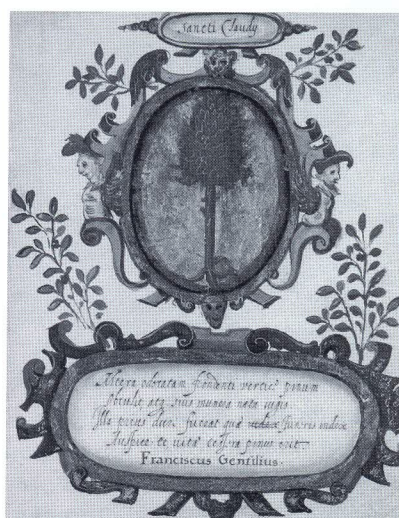 Sancti Claudy
Altera odoratam frondenti vertice pinum
Obtulit atq suis munera nata iugis
Illa prius dum fuerat quae funeris index
Auspice te vitae tessera pinus erit.
Franciscus Gentilius.